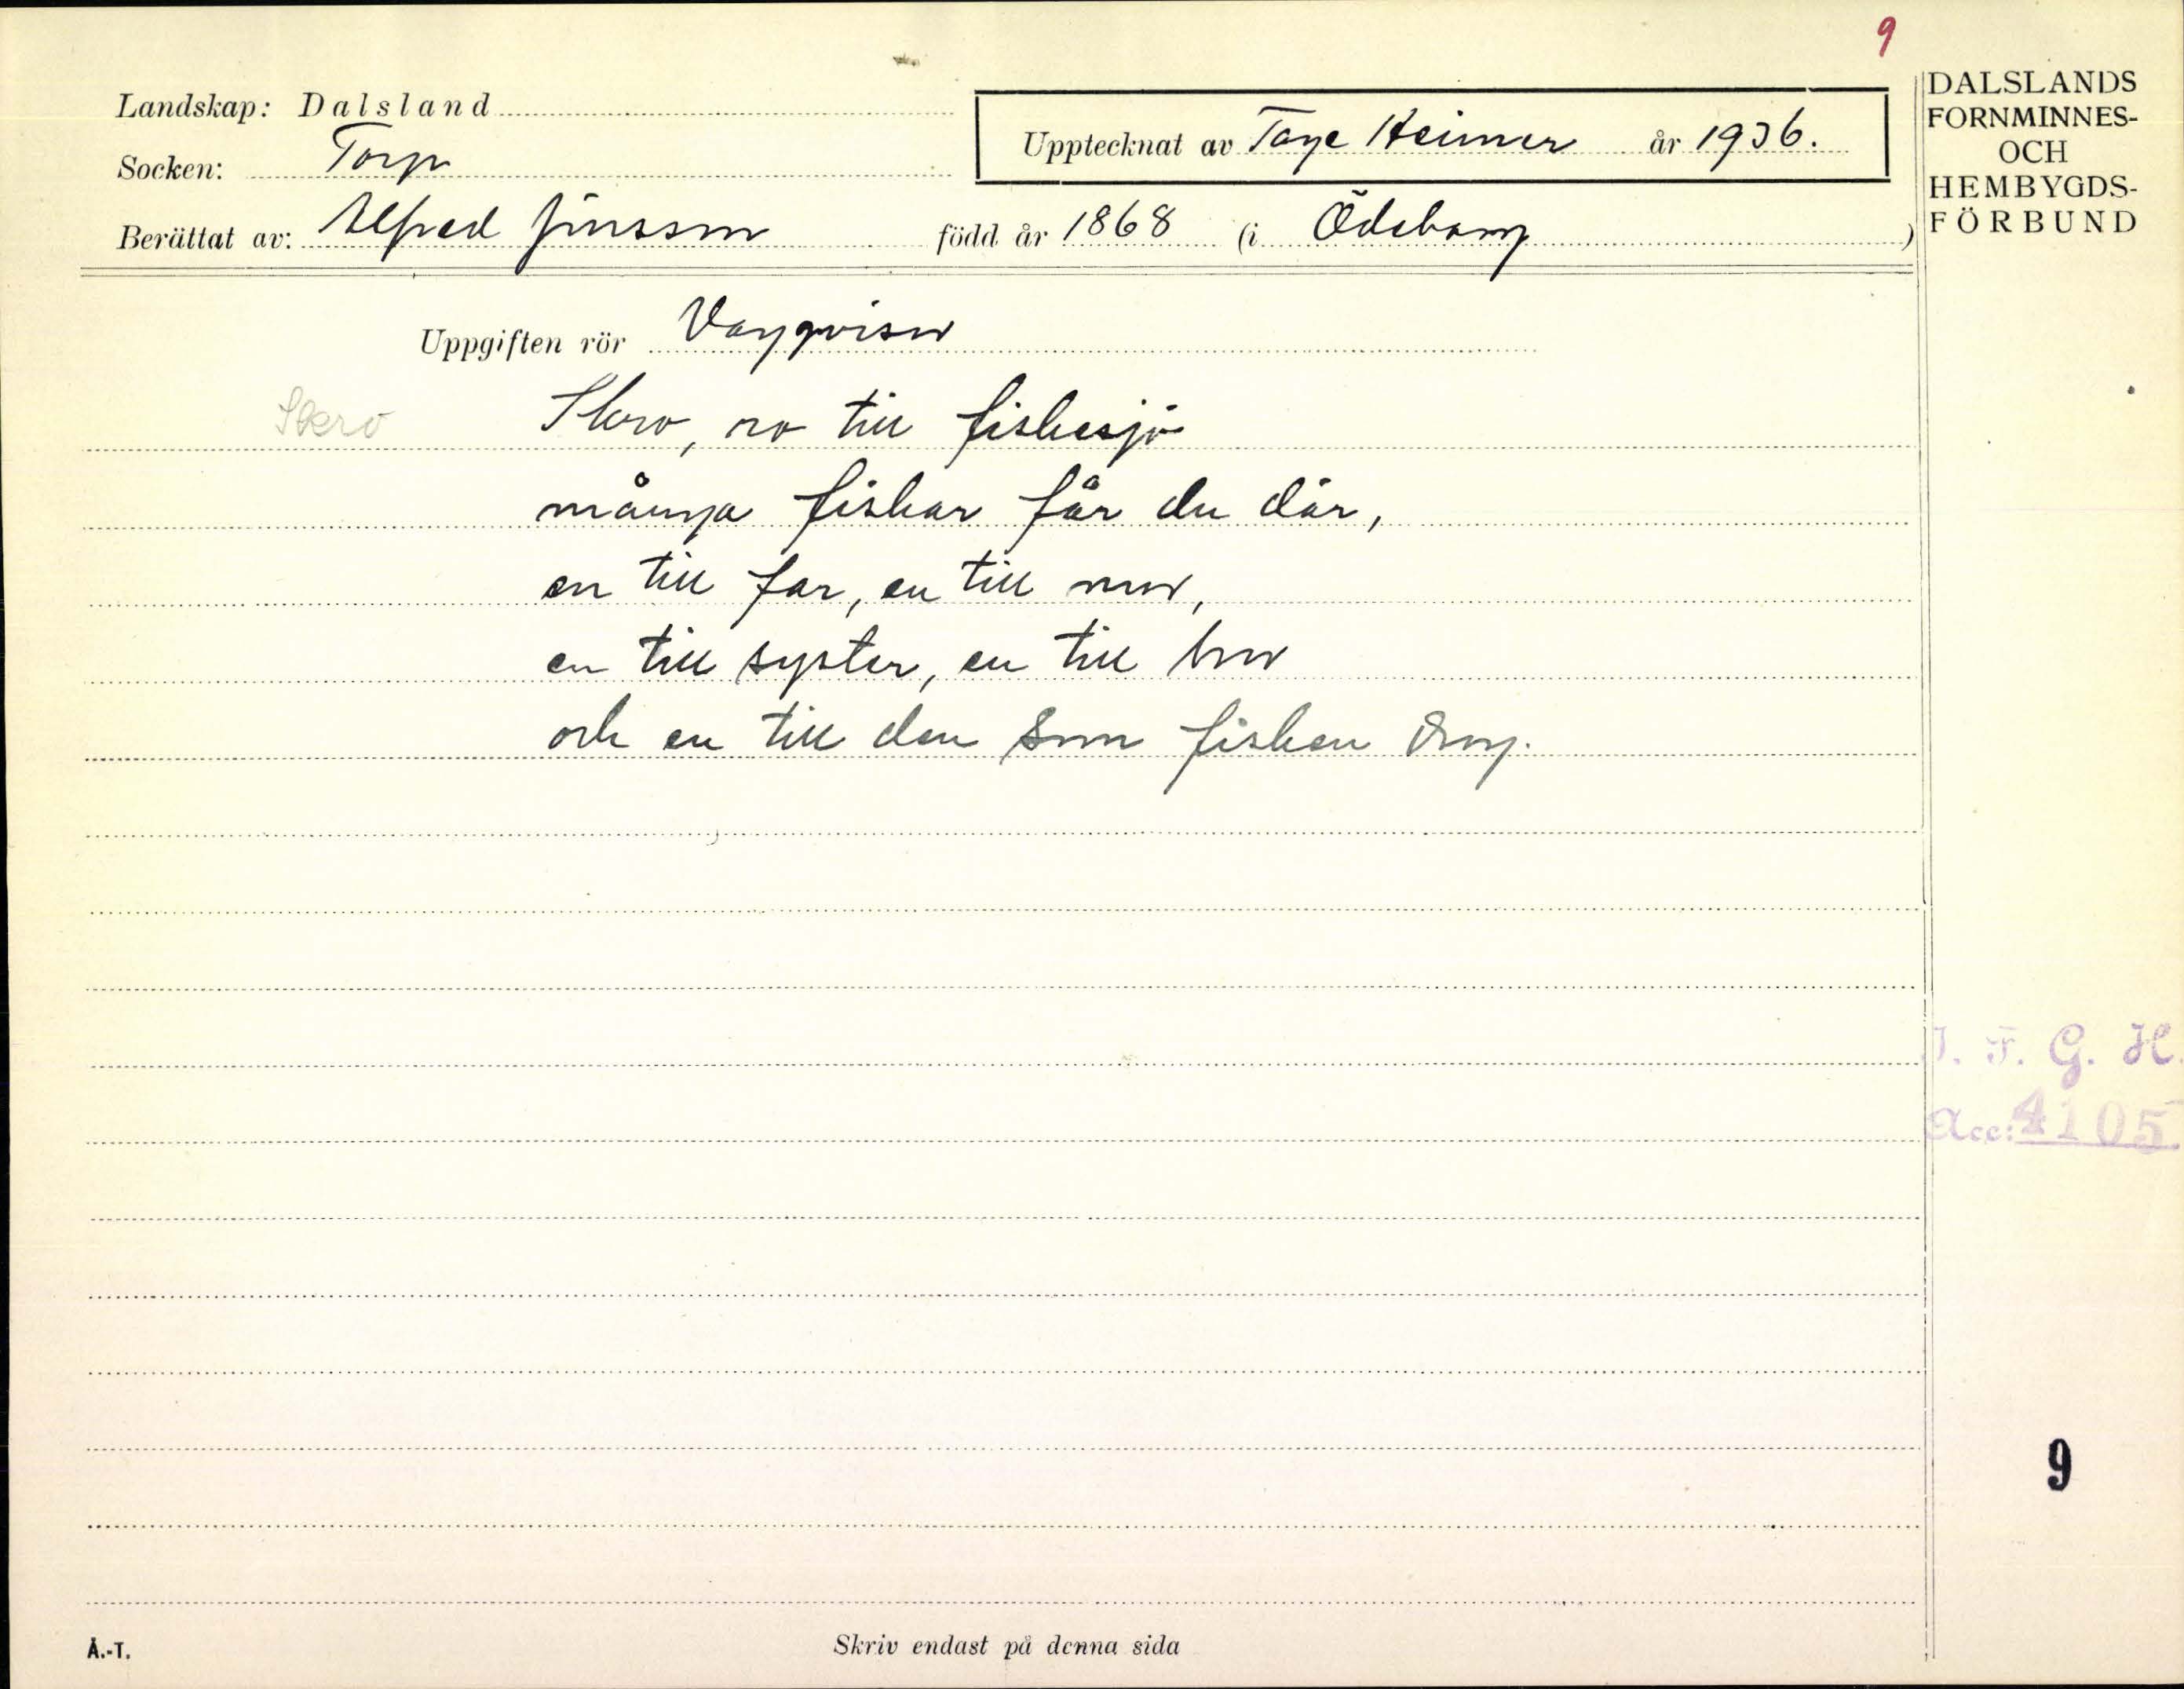 9
Landskap: Dalsland
Socken: Torp
Upptecknat av Tage Heimer år 1936.
Berättat av: Alfred Jonsson född år 1868 (i Ödeborg)
DALSLANDS
FORNMINNES-
OCH
HEMBYGDS-
FÖRBUND
Uppgiften rör Vaggvisor
Skero
Skero, ro till fiskesjö
många fiskar får du där,
en till far, en till mor,
en till syster, en till bror
och en till den som fisken drog.
I. F. G. H.
Acc: 4105
9
Å.-T.
Skriv endast på denna sida